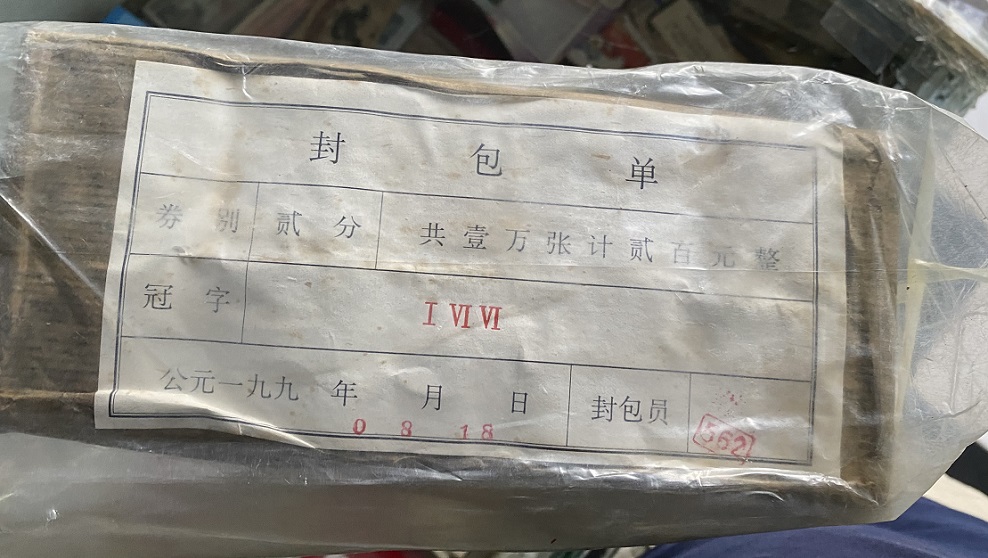 封包单
券别 贰分 共壹万张计贰百元整
冠字 ⅠⅥⅥ
公元一九九 年 月 日 封包员
0 8 18
562